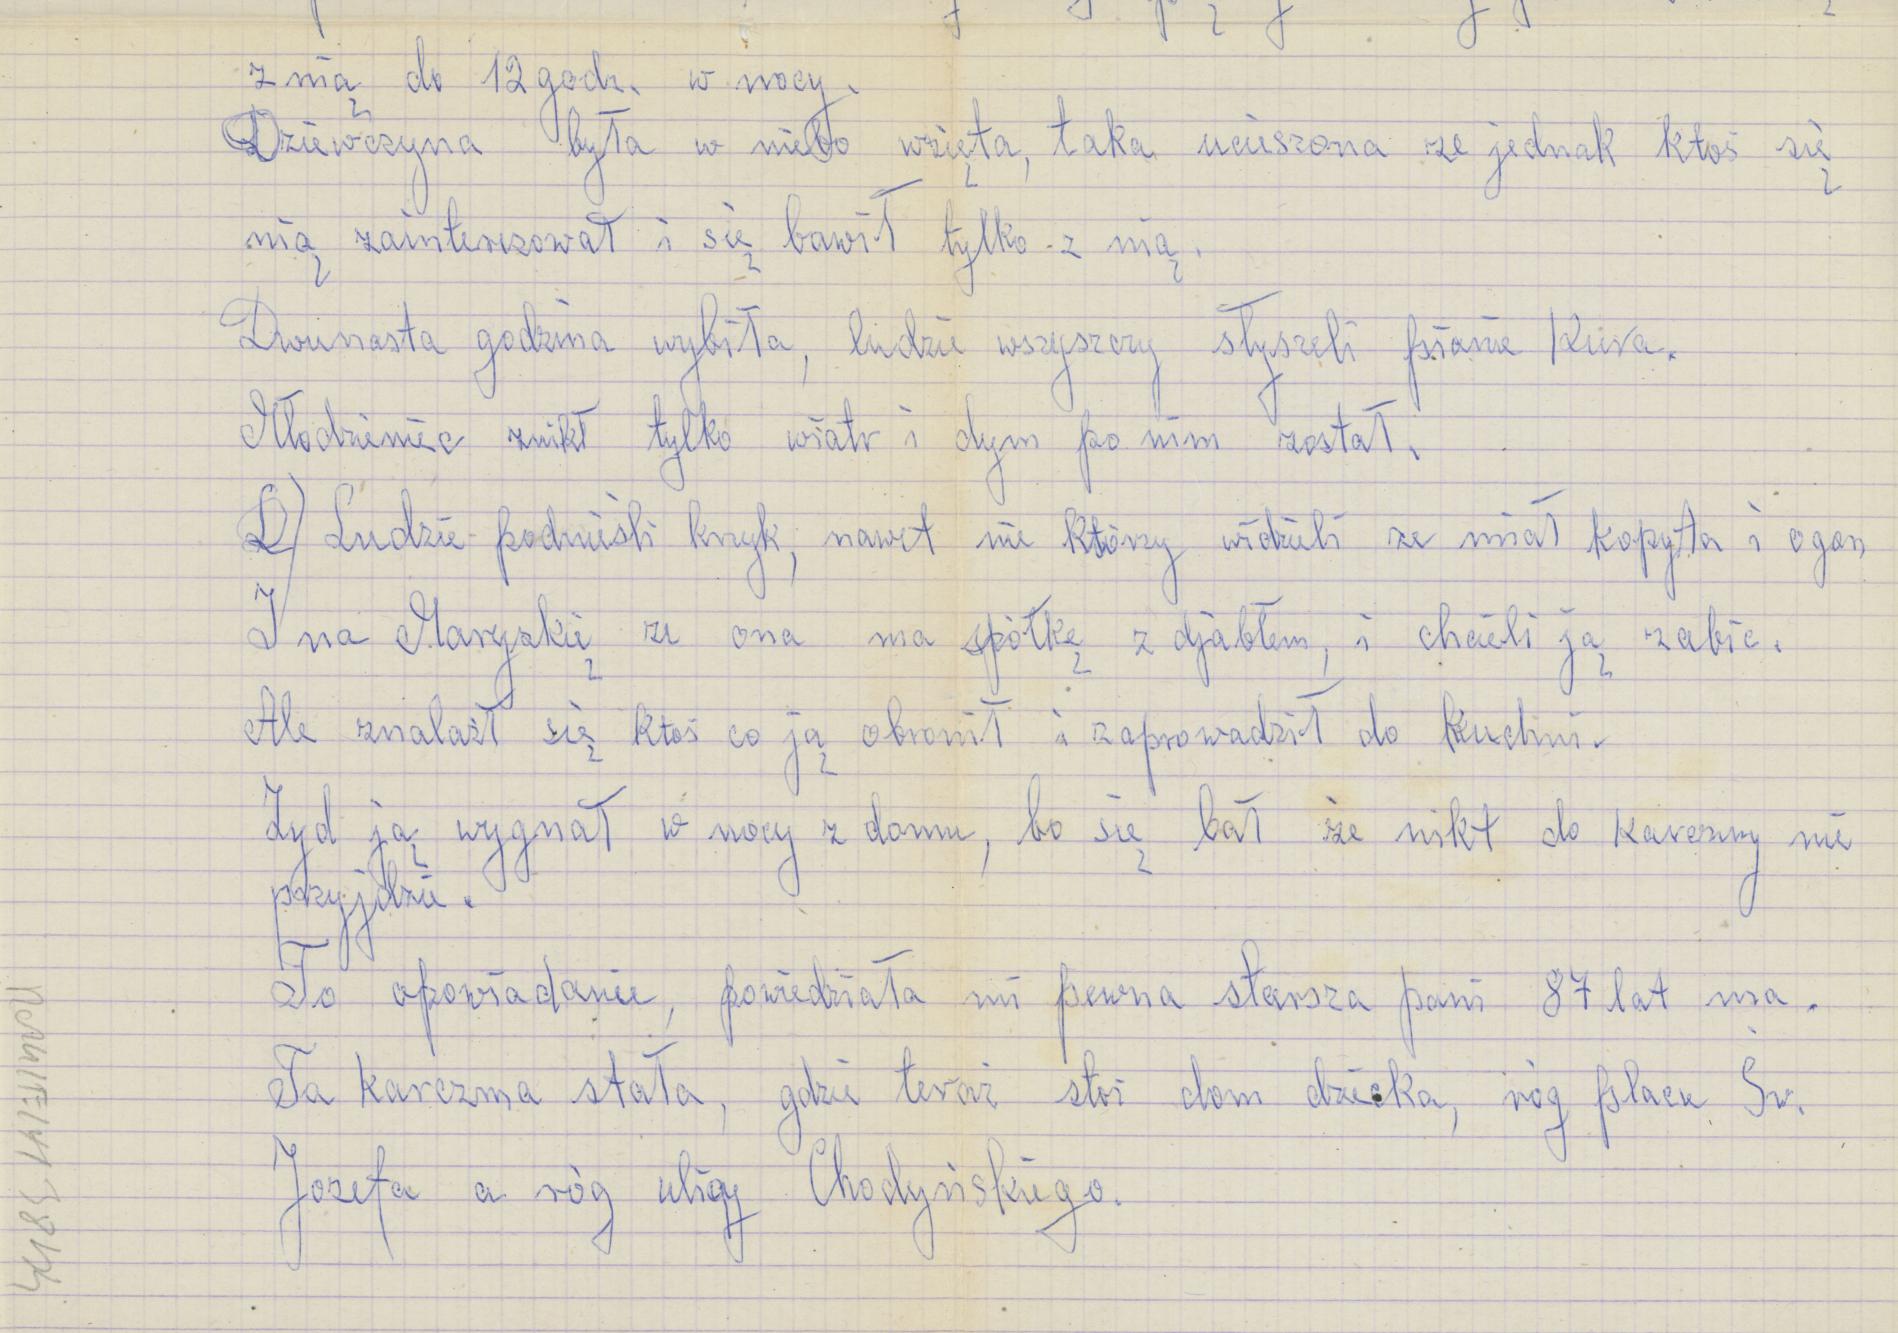 z nią do 12 godz. w nocy.
Dziewczyna była w niebo wzięta, taka ucieszona ze jednak ktoś się
nią zainterezował i się bawił tylko z nią.
Dwunasta godzina wybiła, ludzie wszyszczy słyszeli pianie Kura.
Młodzieniec znikł tylko wiatr i dym po nim został.
Ludzie podnieśli krzyk, nawet nie którzy widzieli ze miał kopyta i ogon
I na Maryśkię ze ona ma spółkę z djabłem, i chcieli ją zabic.
Ale znalazł się ktoś co ją obronił i zaprowadził do kuchni.
Żyd ją wygnał w nocy z domu, bo się bał że nikt do karczmy nie
przyjdzie.
To opowiadanie, powiedziała mi pewna starsza pani 87 lat ma.
Ta karczma stała, gdzie teraz stoi dom dziecka, róg placu Św.
Jozefa a róg ulicy Chodyńskiego.